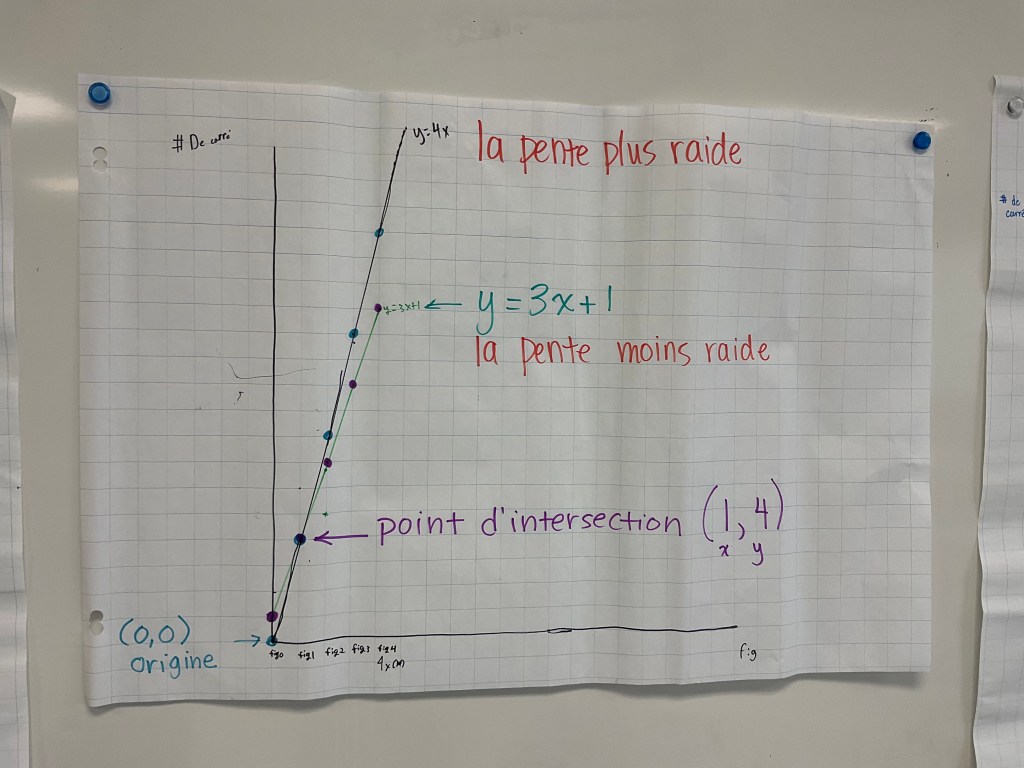 # De carré
y=4x
la pente plus raide
y=3x+1
y = 3x+1
la pente moins raide
point d'intersection (1,4)
x y
(0,0)
origine
fig0 fig1 fig2 fig3 fig4
fig
# de
carré